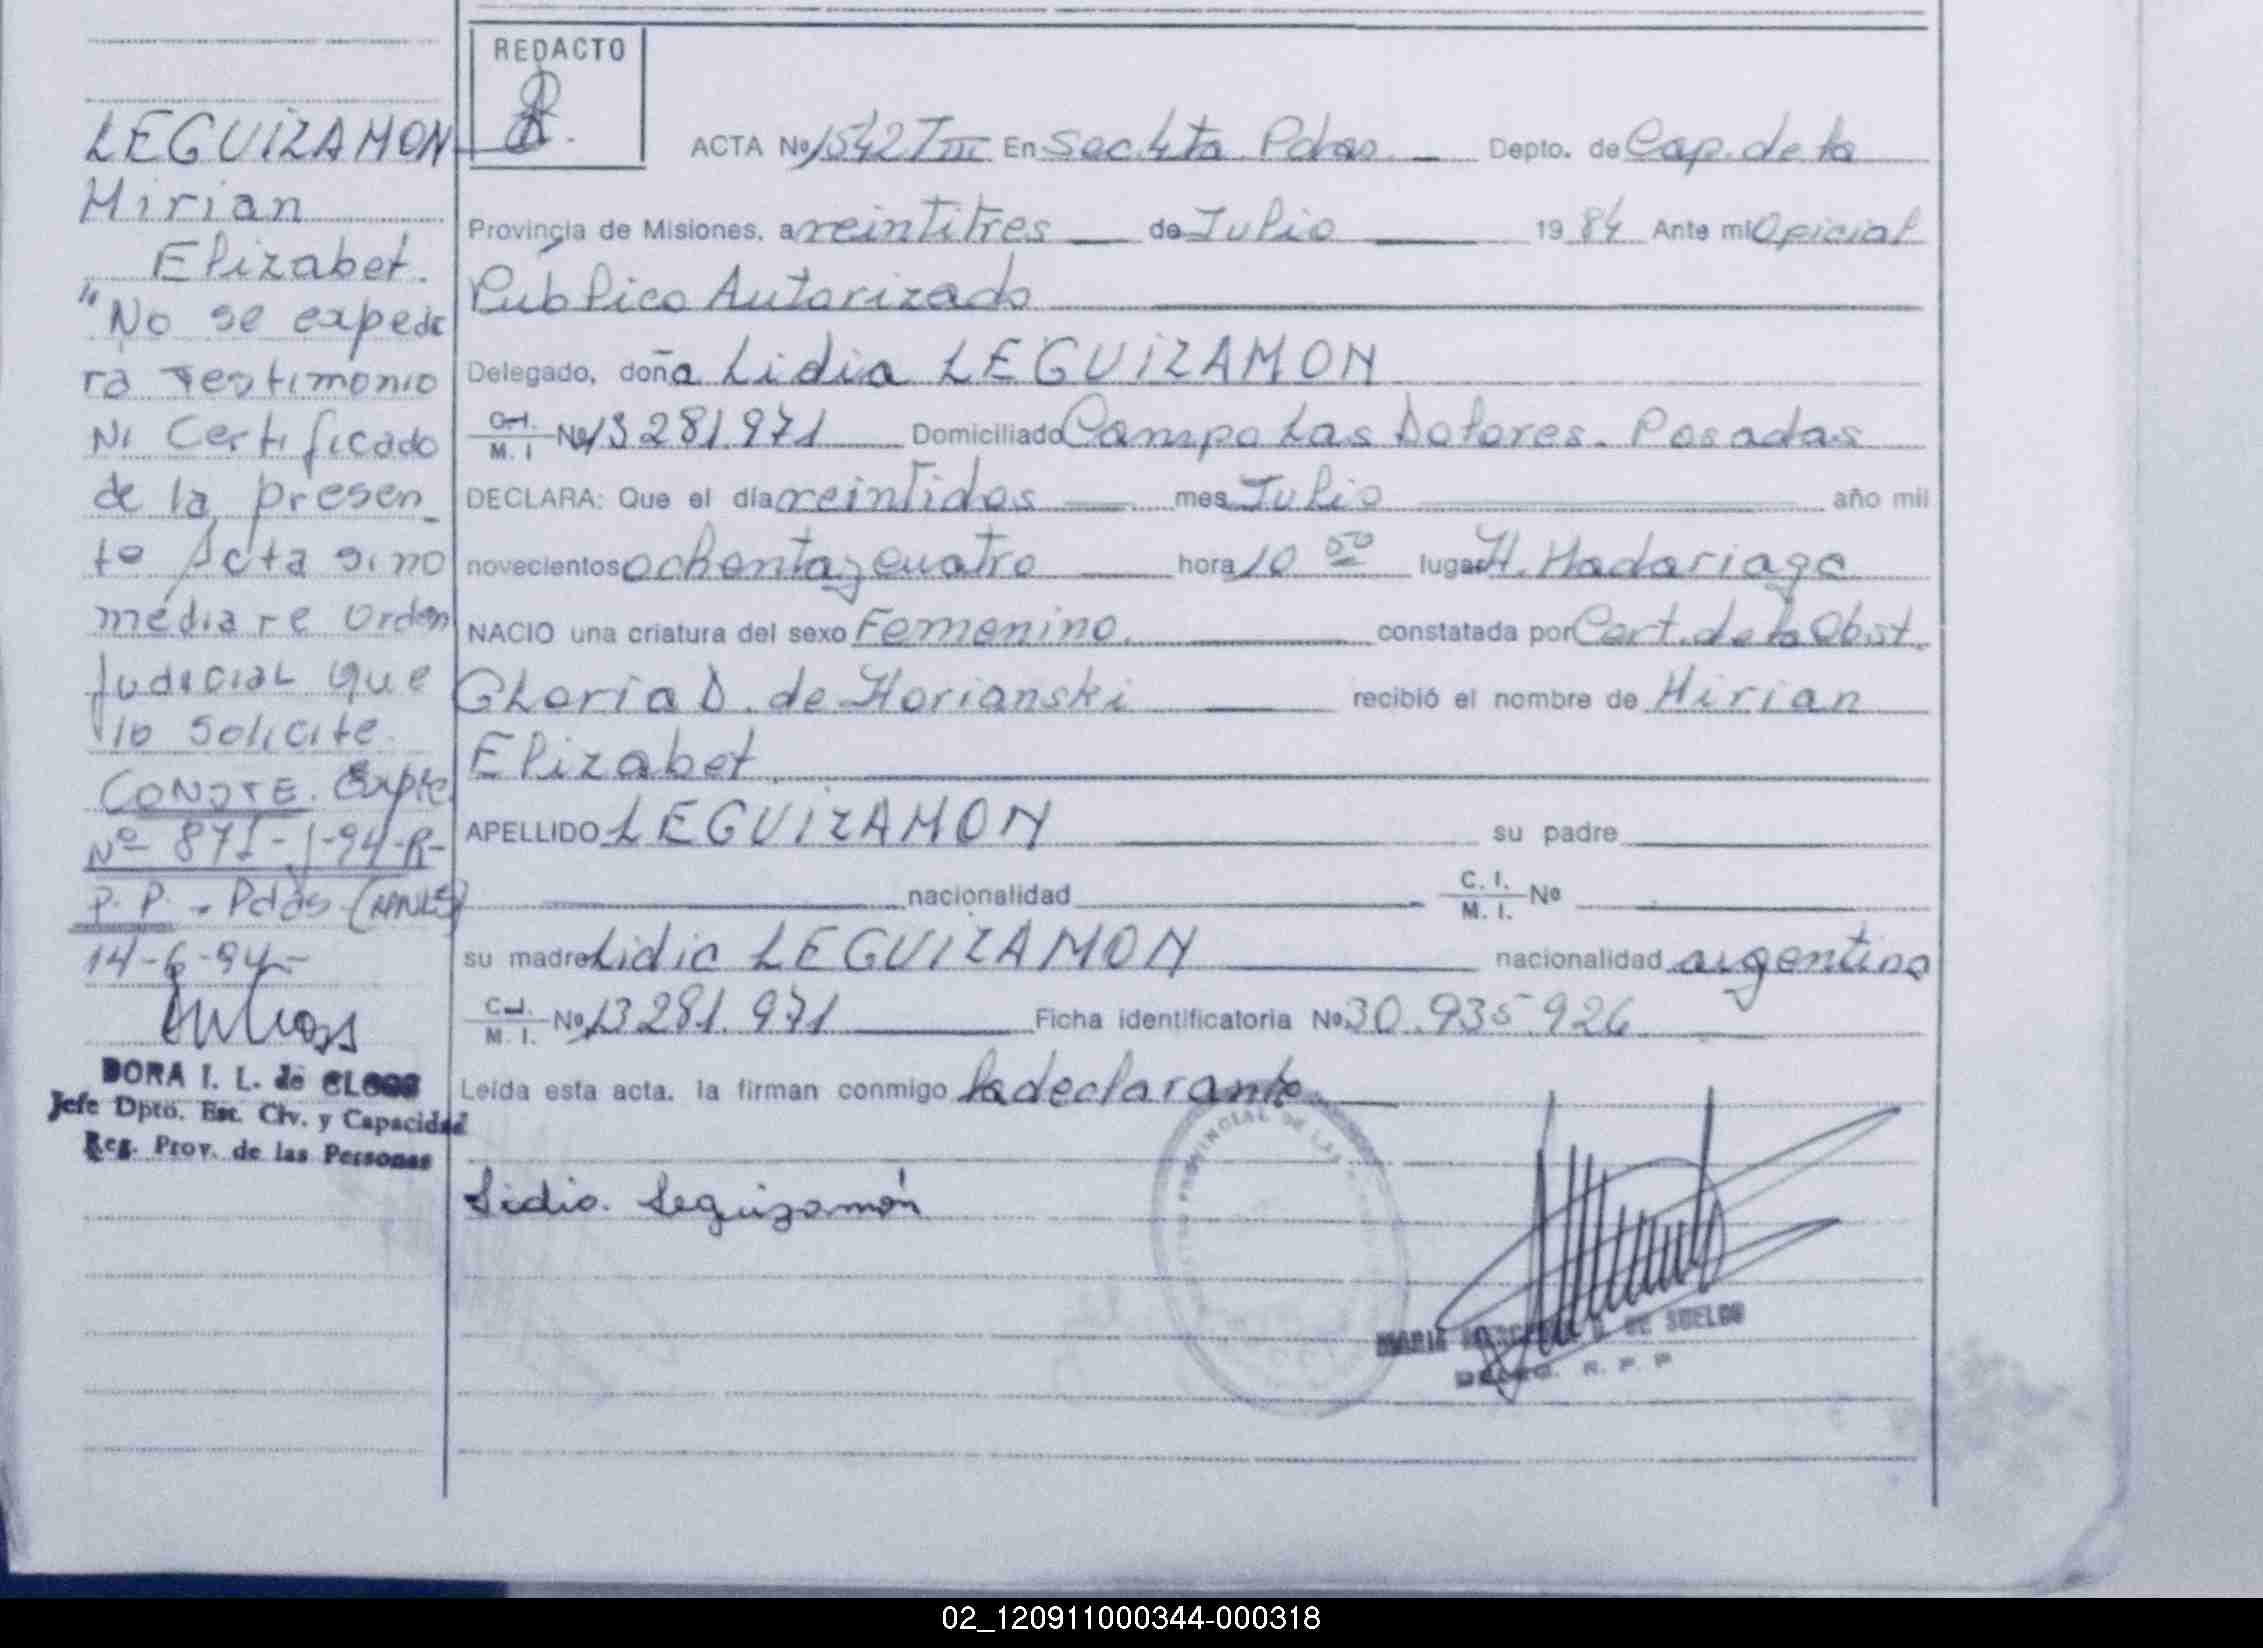 REDACTO
LEGUIZAMON
Mirian
Elizabet.
"No se expedi
rá Testimonio
Ni Certificado
de la presen_
te Acta sino
mediare Orden
Judicial que
lo solicite.
CONSTE. Expte
Nº 871-J-94-R-
P.P. - Pdas
14-6-94-
DORA I. L. de
Jefe Dpto. Est. Civ. y Capacidad
Reg. Prov. de las Personas
ACTA Nº 1542 T III En Sec. 4ta Pdas. Depto. de Cap. de la
Provincia de Misiones, a veintitres de Julio 1984 Ante mi Oficial
Publico Autorizado
Delegado, doña Lidia LEGUIZAMON
C. I. M. I Nº 13 281.971 Domiciliado Campo Las Dolores. Posadas
DECLARA: Que el día veintidos mes Julio año mil
novecientos ochenta y cuatro hora 10 50 lugar H. Madariaga
NACIO una criatura del sexo Femenino. constatada por Cert. de la Obst.
Gloria D. de Horianski recibió el nombre de Mirian
Elizabet
APELLIDO LEGUIZAMON su padre
nacionalidad C. I. M. I. Nº
su madre Lidia LEGUIZAMON nacionalidad argentina
C. I. M. I. Nº 13 281.971 Ficha identificatoria Nº 30.935.926
Leida esta acta, la firman conmigo la declarante.
PROVINCIAL DE LAS
Lidia Leguizamón
MARIA DE SUELDO
R. P. P
02_120911000344-000318